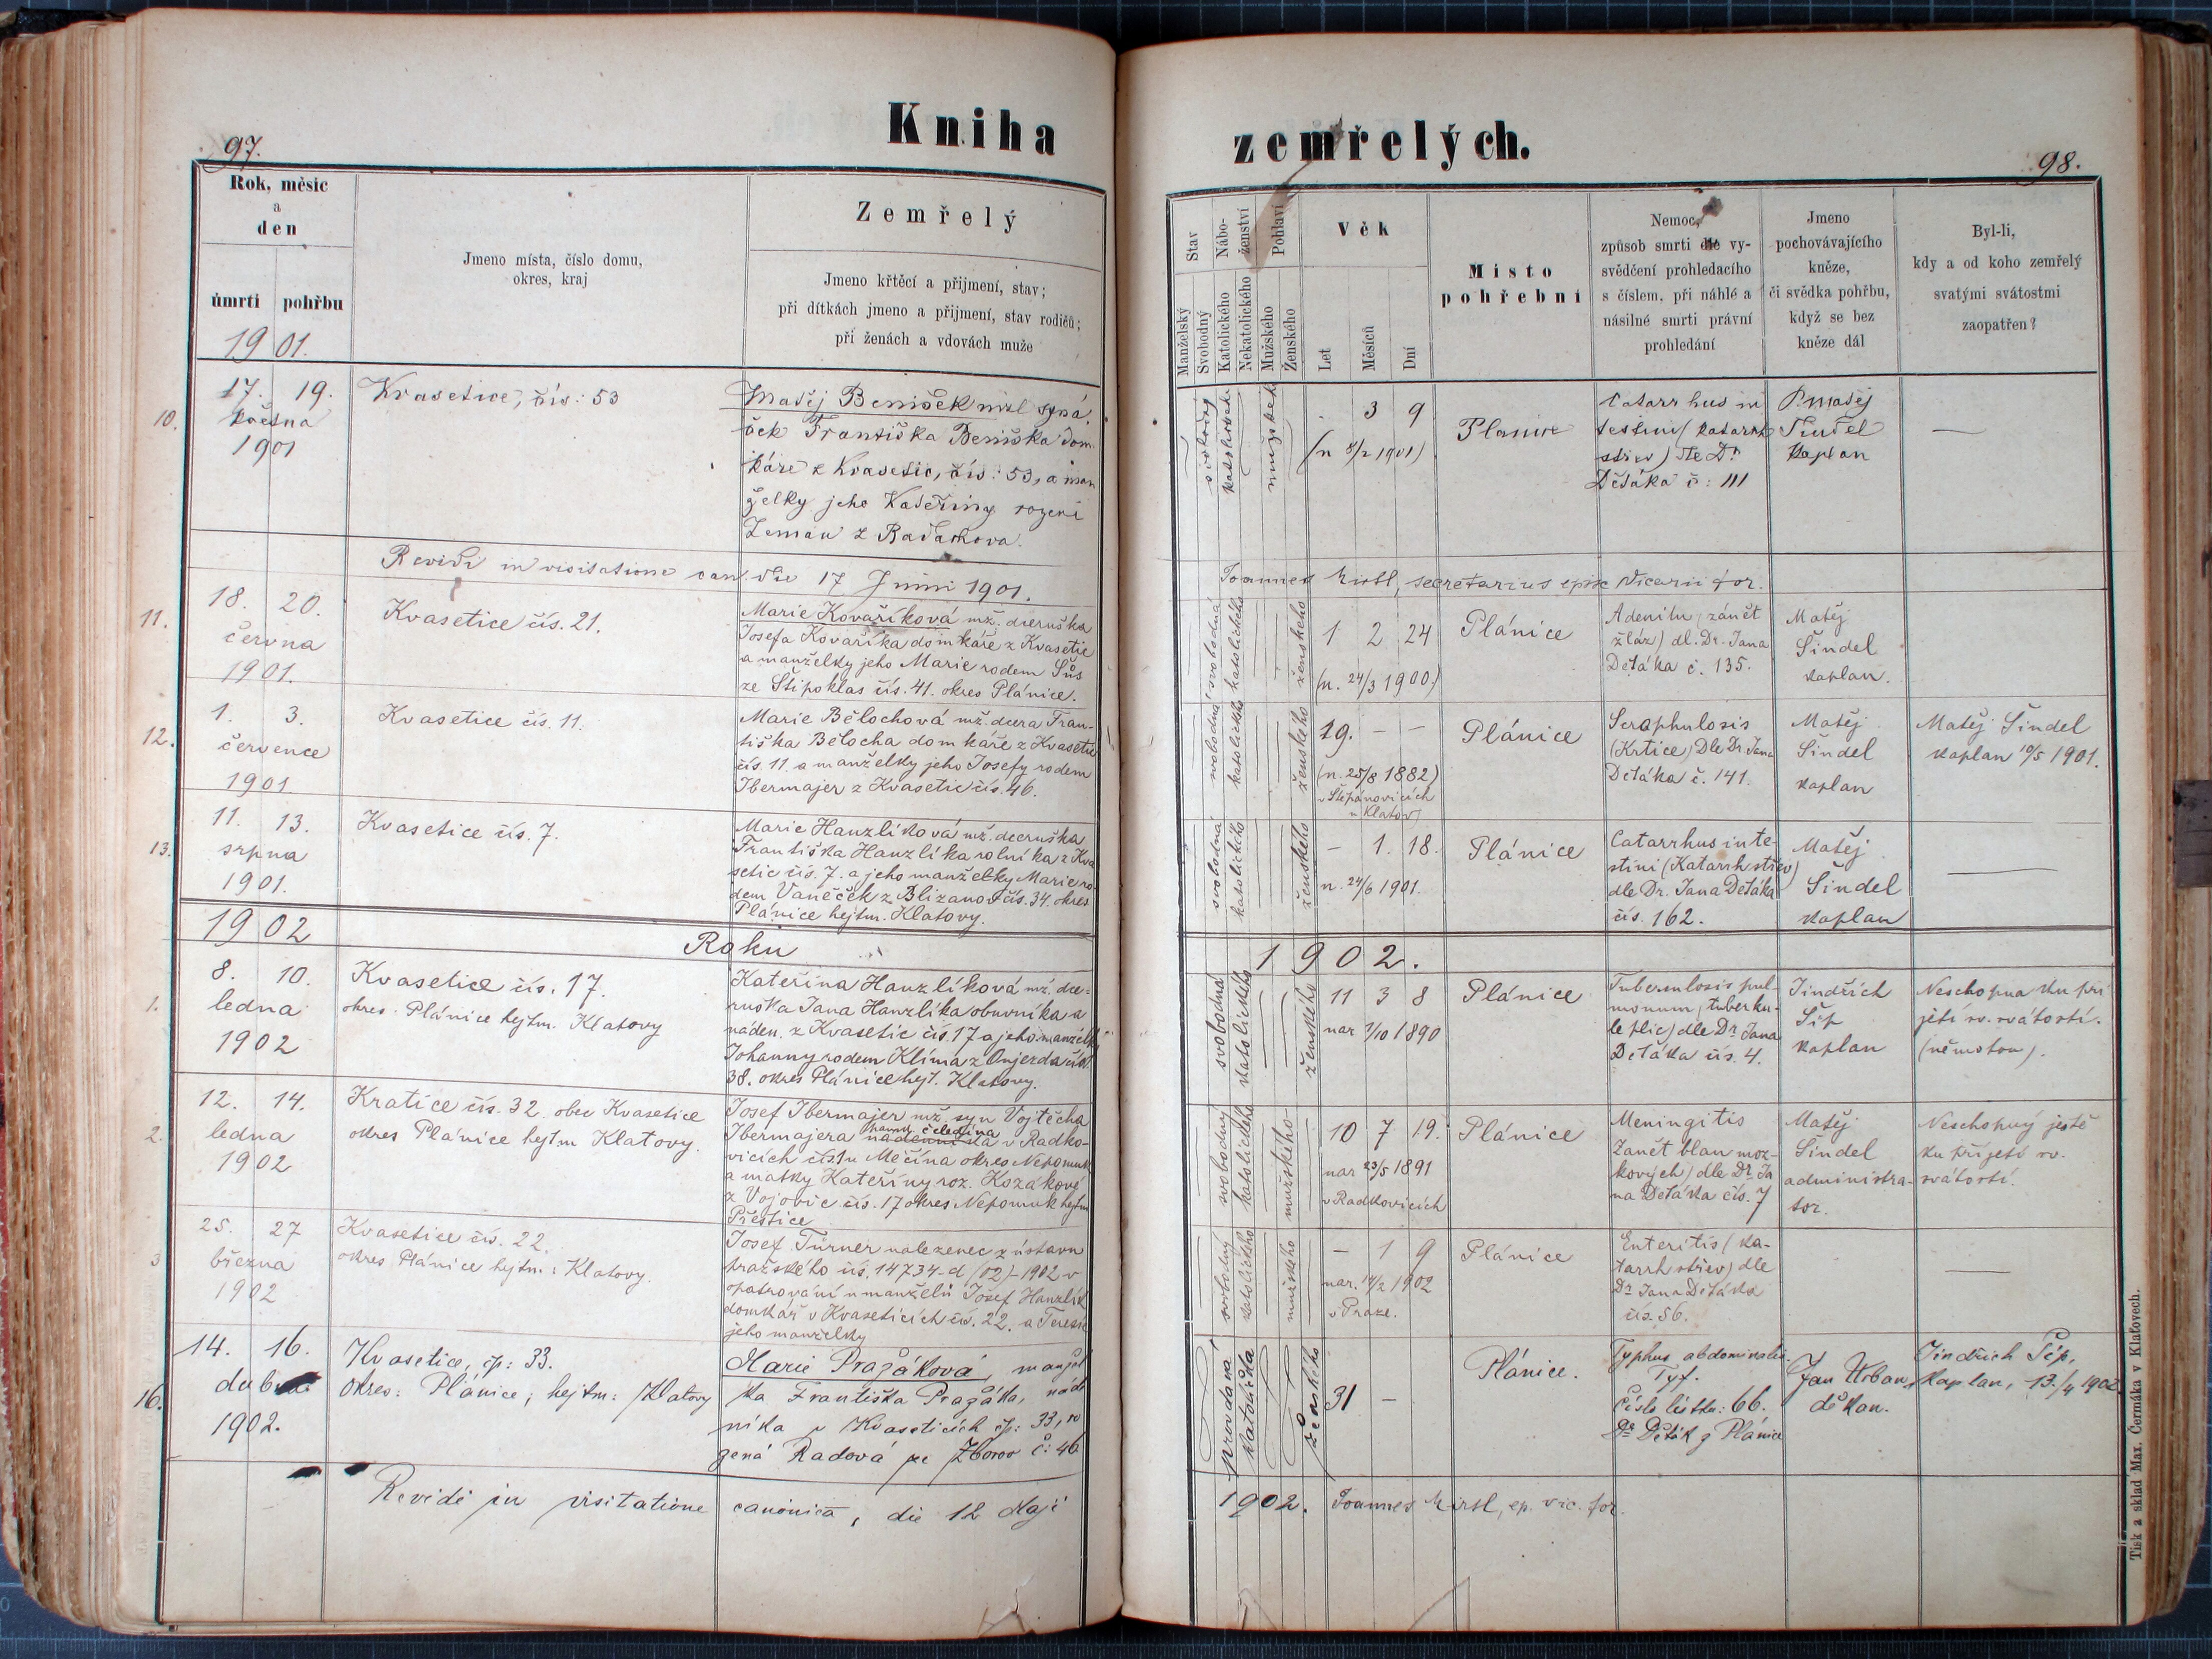 Kniha
zemřelých.
97.
98.
Rok, měsíc
a
den
úmrtí
pohřbu
1901.
Jmeno místa, číslo domu,
okres, kraj
Zemřelý
Jmeno křtěcí a přijmení, stav;
při dítkách jmeno a přijmení, stav rodičů;
při ženách a vdovách muže
Stav
Manželský
Svobodný
Nábo-
ženství
Katolického
Nekatolického
Pohlaví
Mužského
Ženského
Věk
Let
Měsíců
Dní
Místo
pohřební
Nemoc,
způsob smrti dle vy-
svědčení prohledacího
s číslem, při náhlé a
násilné smrti právní
prohledání
Jmeno
pochovávajícího
kněze,
či svědka pohřbu,
když se bez
kněze dál
Byl-li,
kdy a od koho zemřelý
svatými svátostmi
zaopatřen?
10.
17. 19.
května
1901
Kvasetice, čís: 53
Matěj Beníšek mžl syná
ček Františka Beníška dom
káře z Kvasetic, čís: 53, a man
želky jeho Kateřiny rozené
Zeman z
svobodný
katolického
mužského
3 9
(n 8/2 1901)
Plánice
Catarrhus in
testini (katarrh
střev) dle Dr
Děťáka č: 111
P. Matěj
Šindel
kaplan
—
Revidi in visitatione can. die 17 Junii 1901.
Joannes Kirtl, secretarius episc Vicarii for.
11.
18. 20.
června
1901.
Kvasetice čís. 21.
Marie Kovaříková mž. dceruška
Josefa Kovaříka domkáře z Kvasetic
a manželky jeho Marie rodem Šůs
ze Štipoklas čís. 41. okres Plánice.
svobodná
katolického
ženského
1 2 24
(n. 24/3 1900.)
Plánice
Adenitis, zánět
žláz) dl. Dr. Jana
Deťáka č. 135.
Matěj
Šindel
kaplan.
12.
1. 3.
července
1901
Kvasetice čís. 11.
Marie Bělochová mž. dcera Fran-
tiška Bělocha domkáře z Kvasetic
čís. 11 a manželky jeho Josefy rodem
Ibermajer z Kvasetic čís. 46.
svobodná
katolického
ženského
19. — —
(n. 25/8 1882)
v Štěpánovicích
u Klatov
Plánice
Scraphulosis
(Krtice) Dle Dr Jana
Deťáka č. 141.
Matěj
Šindel
kaplan
Matěj Šindel
kaplan 10/5 1901.
13.
11. 13.
srpna
1901.
Kvasetice čís. 7.
Marie Hanzlíková mž. dceruška
Františka Hanzlíka rolníka z Kva
setic čís. 7. a jeho manželky Marie ro-
dem Vaněček z Blizanov čís. 34. okres
Plánice hejtm. Klatovy.
svobodná
katolického
ženského
— 1. 18.
n. 24/6 1901.
Plánice
Catarrhus inte-
stini (Katarrh střev)
dle Dr. Jana Deťáka
čís. 162.
Matěj
Šindel
kaplan
—
1902
Roku
1902.
1.
8. 10.
ledna
1902
Kvasetice čís. 17.
okres Plánice hejtm. Klatovy
Kateřina Hanzlíková mž. dce-
ruška Jana Hanzlíka obuvníka a
náden. z Kvasetic čís. 17 a jeho manželky
Johanny rodem Klíma z Onjezda čís.
38. okres Plánice hejt. Klatovy.
svobodná
katolického
ženského
11 3 8
nar 1/10 1890
Plánice
Tuberculosis pul-
monum, tuberku-
le plic) dle Dr Jana
Deťáka čís. 4.
Jindřich
Šíp
kaplan
Neschopna ku při
jetí sv. svátostí.
(němotou).
2.
12. 14.
ledna
1902
Kratice čís. 32. obec Kvasetice
okres Plánice hejtm Klatovy.
Josef Ibermajer mž. syn Vojtěcha
Ibermajera čeledína v Radko-
vicích čís. 1 u Měčína okres Nepomuk
a matky Kateřiny roz. Kozákové
z Vojovic čís. 17 okres Nepomuk hejtm
Přeštice
svobodný
katolického
mužského
10 7 19.
nar 23/5 1891
v Radkovicích
Plánice
Meningitis
Zánět blan moz-
kových) dle Dr Ja
na Deťáka čís. 7
Matěj
Šindel
administra-
tor.
Neschopný ještě
ku přijetí sv.
svátostí.
3
25. 27
března
1902
Kvasetice čís. 22.
okres Plánice hejtm: Klatovy.
Josef Túrner nalezenec z ústavu
pražského čís. 14734-d (02)-1902 v
opatrování u manželů Josef Hanzlík
domkář v Kvaseticích čís. 22. a Teresie
jeho manželky
svobodný
katolického
mužského
— 1 9
nar. 14/2 1902
v Praze.
Plánice
Enteritis (ka-
tarrh střev) dle
Dr Jana Deťáka
čís. 56.
—
16.
14. 16.
dubna
1902.
Kvasetice, čp: 33.
Okres: Plánice; hejtm: Klatovy
Marie Pražáková, manžel
ka Františka Pražáka, nád
níka v Kvaseticích čp: 33, ro
zená Radová ze Zborov č: 46
provdaná
katolička
ženského
31 —
Plánice.
Typhus abdominalis.
Tyf.
Číslo lístku: 66.
Dr Děták z Plánice
Jan Urban,
děkan.
Jindřich Šíp,
kaplan, 13./4 1902.
Revidi in visitatione canonica, die 12 Maji
1902. Joannes Kirtl, ep. vic. for.
Tisk a sklad Max. Čermáka v Klatovech.